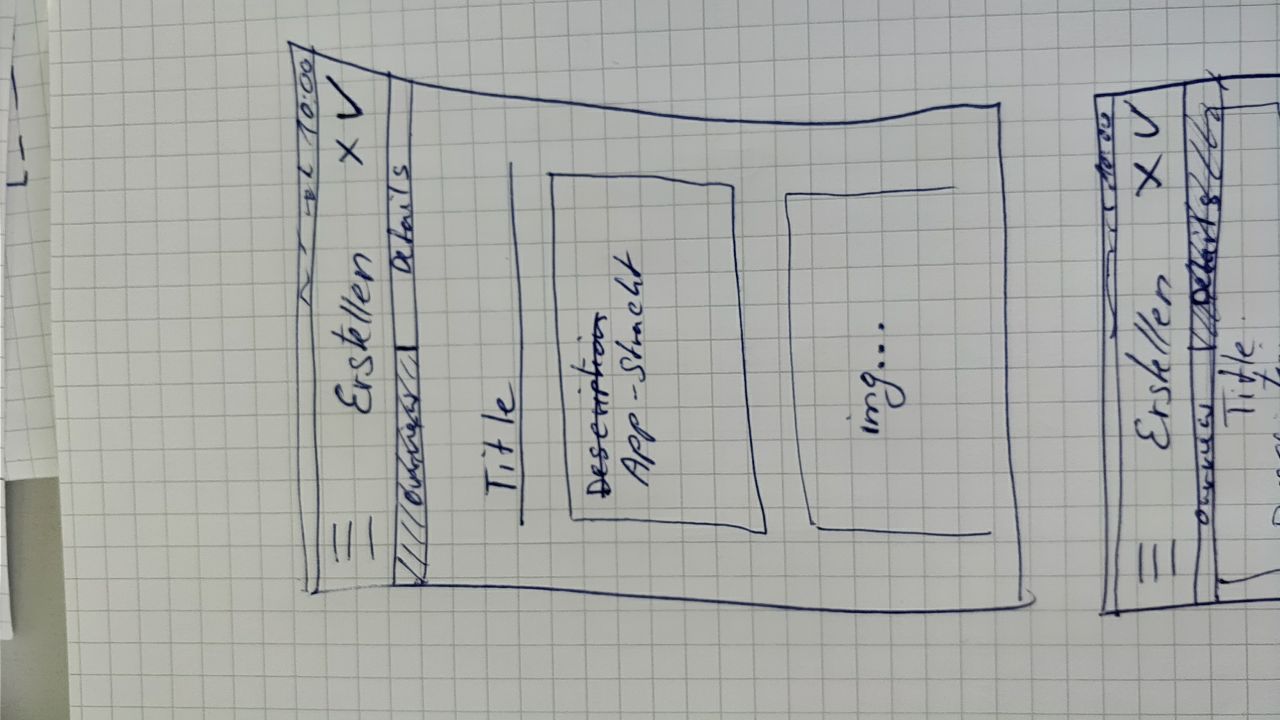 10:00
Erstellen X V
Overview Details
Title
Description
App-Struckt
img...
10:00
Erstellen X V
Overview Details
Title